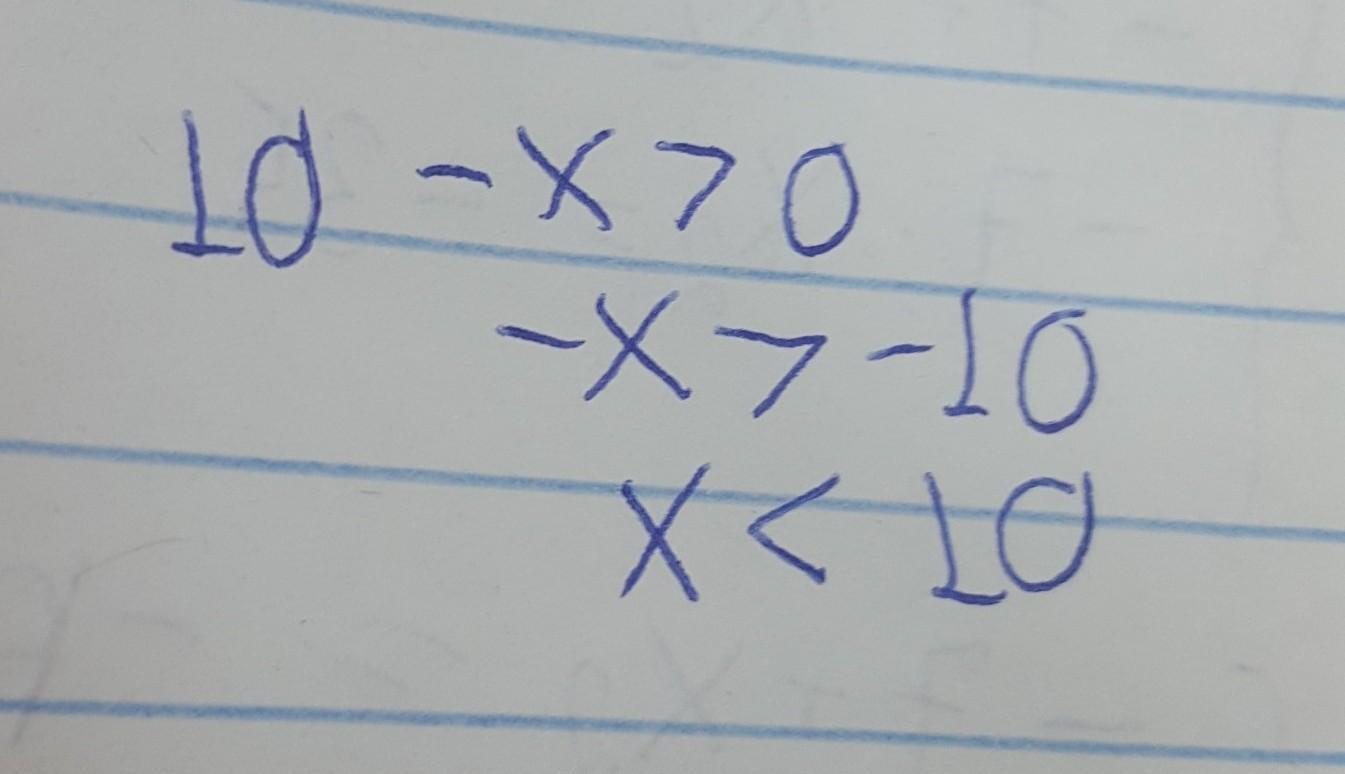 10 -x>0
-x>-10
x<10